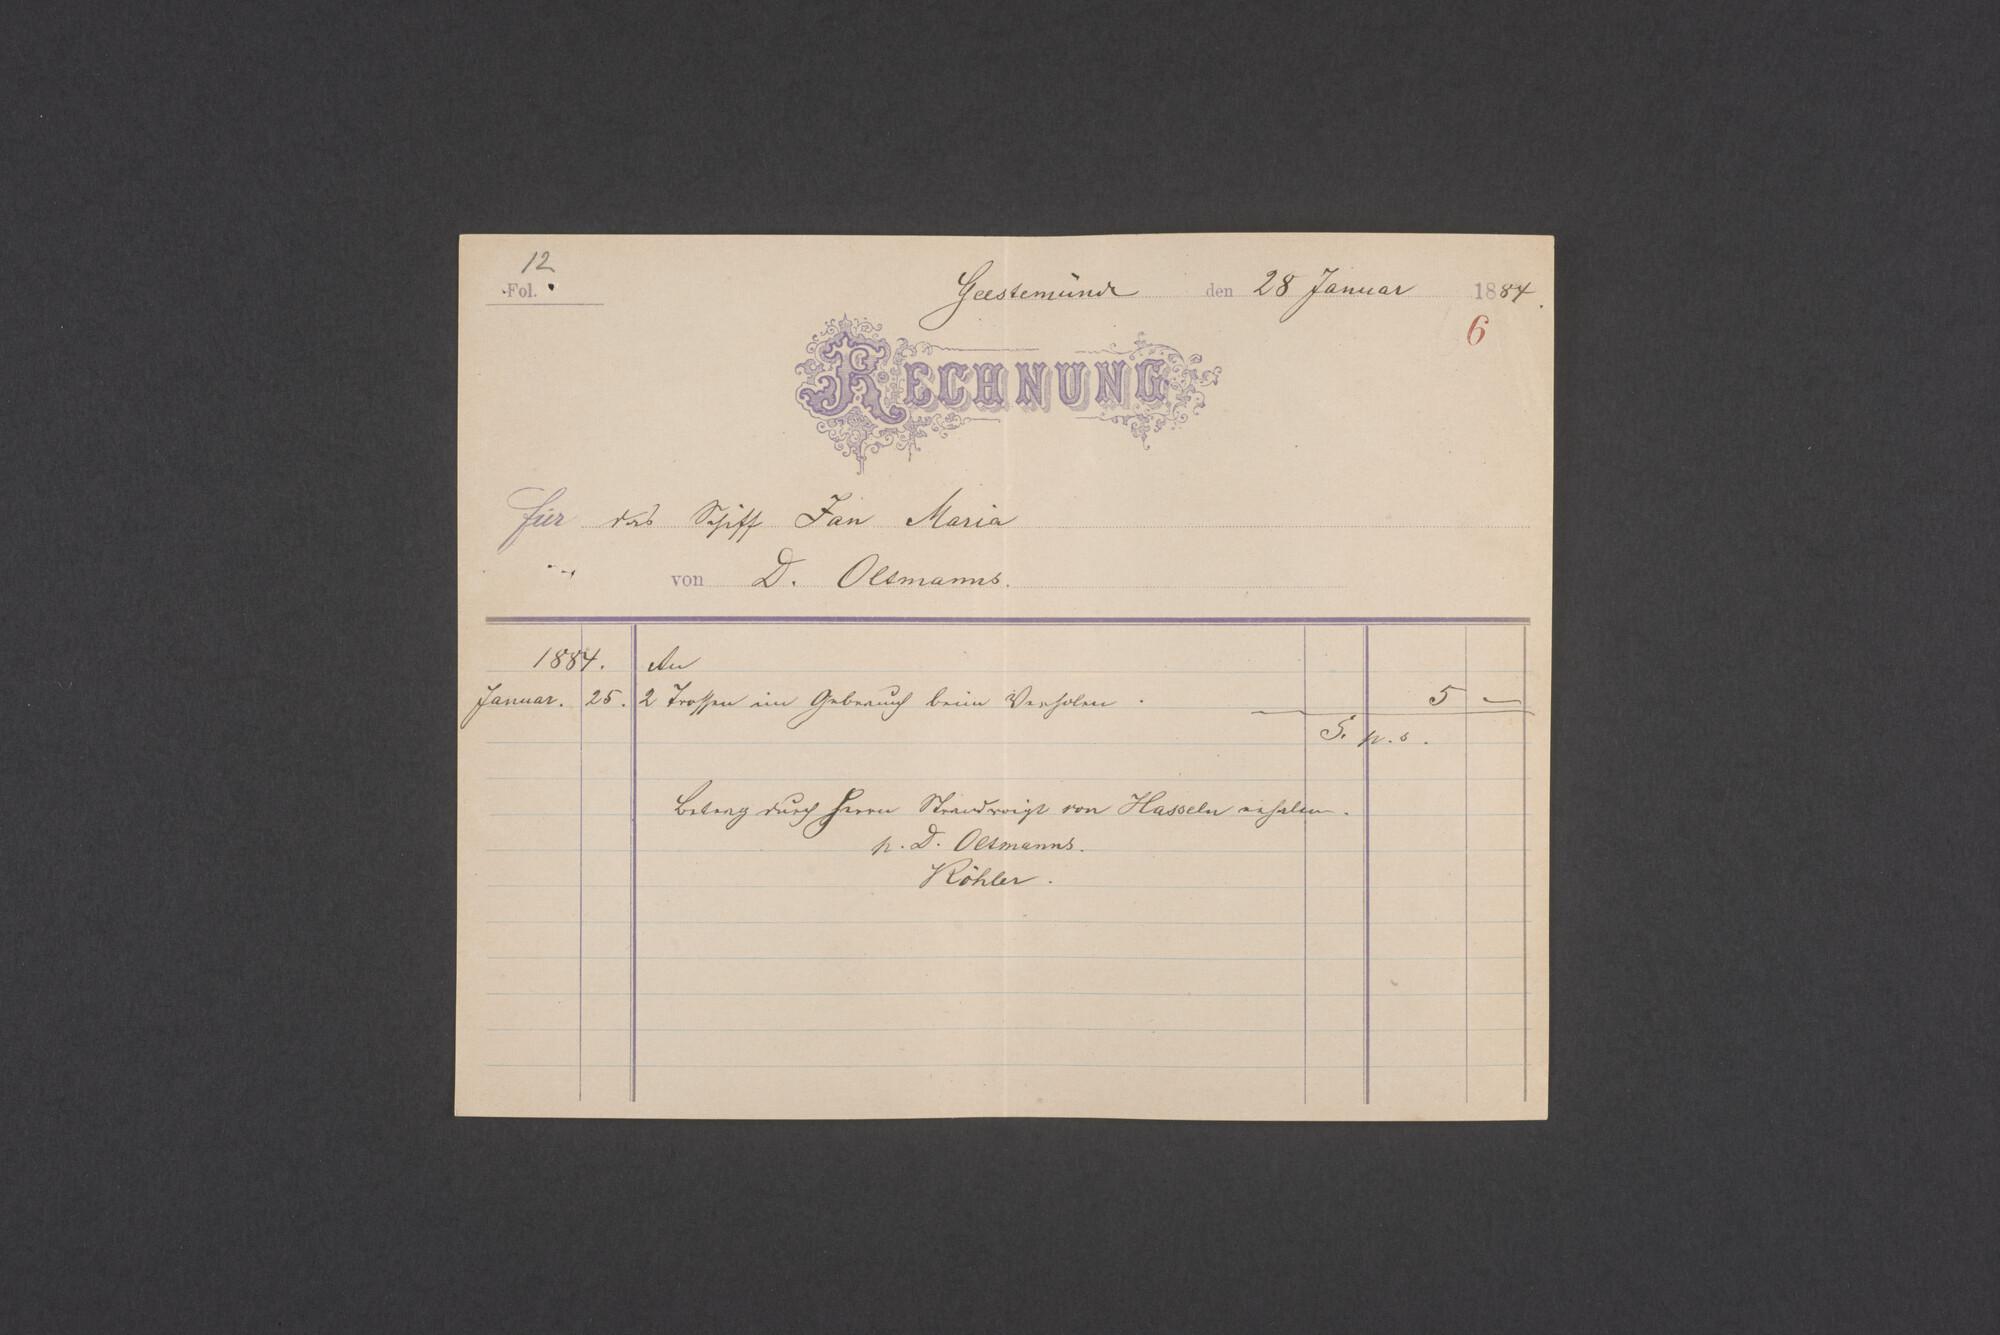 12
Fol.
Geestemünde den 28 Januar 1884.
6
RECHNUNG
für das Schiff Jan Maria
von D. Oltmanns.
1884. An
Januar. 25. 2 Trossen im Gebrauch beim Verholen . 5 —
S. p. s.
Betrag durch Herrn Strandvoigt von Hasseln erhalten.
p. D. Oltmanns.
Köhler.